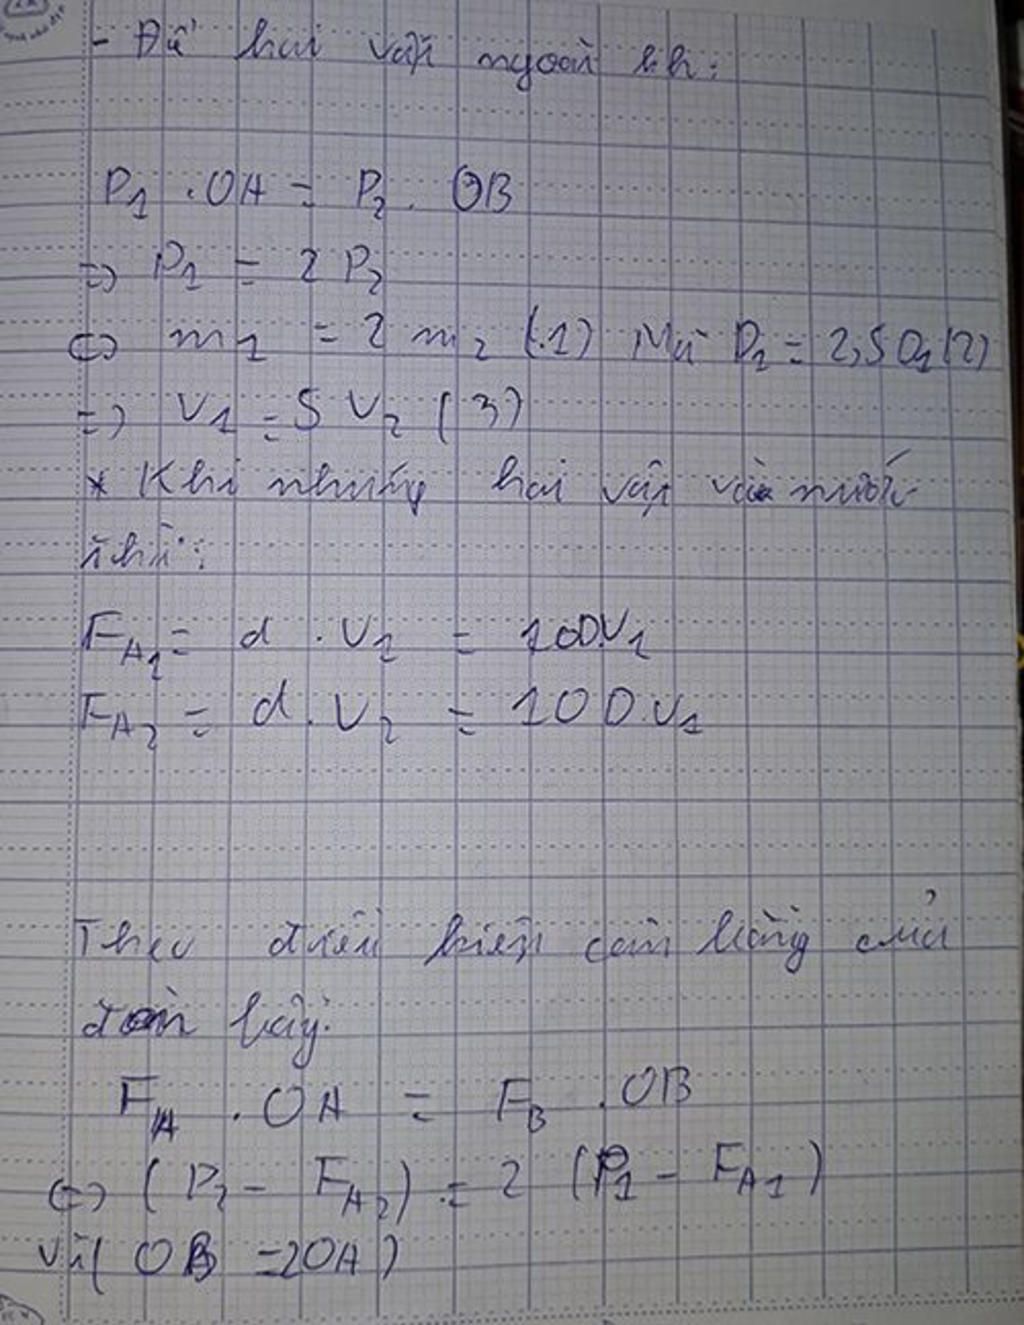 - Để hai vật ngoài kk:
P1 . OA = P2 . OB
=> P1 = 2 P2
<=> m1 = 2 m2 (1) Mà D2 = 2,5 D1 (2)
=> V1 = 5 V2 (3)
* Khi nhúng hai vật vào nước
thì:
FA1 = d . V1 = 10D.V1
FA2 = d . V2 = 10D.V1
Theo điều kiện cân bằng của
đòn bẩy:
FA . OA = FB . OB
<=> (P2 - FA2) = 2 (P1 - FA1)
Vì ( OB = 2OA )